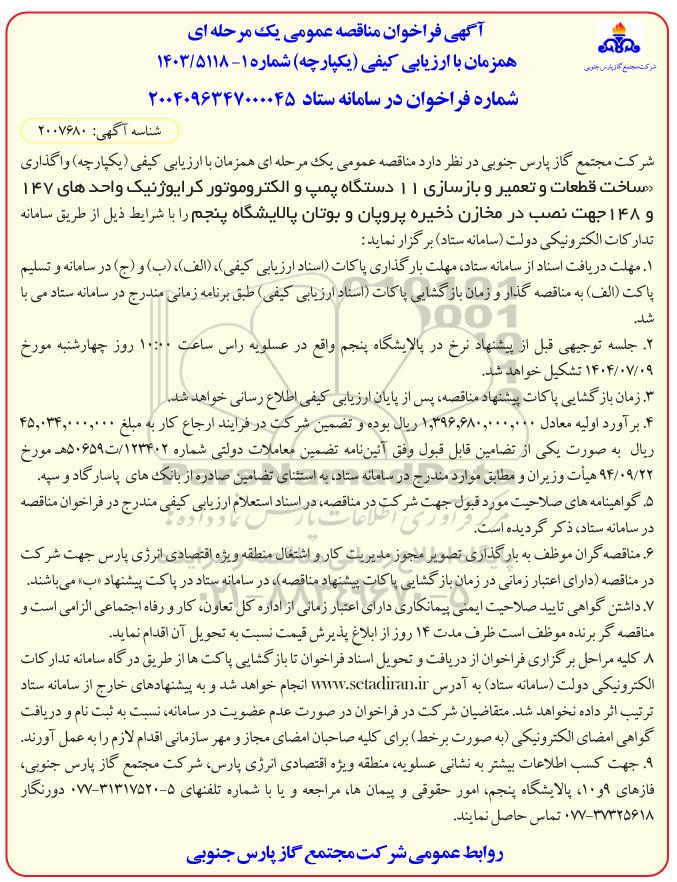 آگهی فراخوان مناقصه عمومی یک مرحله ای
همزمان با ارزیابی کیفی (یکپارچه) شماره ۱- ۱۴۰۳/۵۱۱۸
شرکت مجتمع گاز پارس جنوبی
شماره فراخوان در سامانه ستاد ۲۰۰۴۰۹۶۳۴۷۰۰۰۰۴۵
شناسه آگهی: ۲۰۰۷۶۸۰
شرکت مجتمع گاز پارس جنوبی در نظر دارد مناقصه عمومی یک مرحله ای همزمان با ارزیابی کیفی (یکپارچه) واگذاری
«ساخت قطعات و تعمیر و بازسازی ۱۱ دستگاه پمپ و الکتروموتور کرایوژنیک واحد های ۱۴۷
و ۱۴۸جهت نصب در مخازن ذخیره پروپان و بوتان پالایشگاه پنجم را با شرایط ذیل از طریق سامانه
تدارکات الکترونیکی دولت (سامانه ستاد) برگزار نماید:
۱. مهلت دریافت اسناد از سامانه ستاد، مهلت بارگذاری پاکات (اسناد ارزیابی کیفی)، (الف)، (ب) و (ج) در سامانه و تسلیم
پاکت (الف) به مناقصه گذار و زمان بازگشایی پاکات (اسناد ارزیابی کیفی) طبق برنامه زمانی مندرج در سامانه ستاد می با
شد.
۲. جلسه توجیهی قبل از پیشنهاد نرخ در پالایشگاه پنجم واقع در عسلویه راس ساعت ۱۰:۰۰ روز چهارشنبه مورخ
۱۴۰۴/۰۷/۰۹ تشکیل خواهد شد.
۳. زمان بازگشایی پاکات پیشنهاد مناقصه، پس از پایان ارزیابی کیفی اطلاع رسانی خواهد شد.
۴. برآورد اولیه معادل ۱,۳۹۶,۶۸۰,۰۰۰,۰۰۰ ریال بوده و تضمین شرکت در فرایند ارجاع کار به مبلغ ۴۵,۰۳۴,۰۰۰,۰۰۰
ریال به صورت یکی از تضامین قابل قبول وفق آئین‌نامه تضمین معاملات دولتی شماره ۱۲۳۴۰۲/ت۵۰۶۵۹هـ مورخ
۹۴/۰۹/۲۲ هیأت وزیران و مطابق موارد مندرج در سامانه ستاد، به استثنای تضامین صادره از بانک های پاسارگاد و سپه.
۵. گواهینامه های صلاحیت مورد قبول جهت شرکت در مناقصه، در اسناد استعلام ارزیابی کیفی مندرج در فراخوان مناقصه
در سامانه ستاد، ذکر گردیده است.
۶. مناقصه‌گران موظف به بارگذاری تصویر مجوز مدیریت کار و اشتغال منطقه ویژه اقتصادی انرژی پارس جهت شرکت
در مناقصه (دارای اعتبار زمانی در زمان بازگشایی پاکات پیشنهاد مناقصه)، در سامانه ستاد در پاکت پیشنهاد «ب» می‌باشند.
۷. داشتن گواهی تایید صلاحیت ایمنی پیمانکاری دارای اعتبار زمانی از اداره کل تعاون، کار و رفاه اجتماعی الزامی است و
مناقصه گر برنده موظف است ظرف مدت ۱۴ روز از ابلاغ پذیرش قیمت نسبت به تحویل آن اقدام نماید.
۸. کلیه مراحل برگزاری فراخوان از دریافت و تحویل اسناد فراخوان تا بازگشایی پاکت ها از طریق درگاه سامانه تدارکات
الکترونیکی دولت (سامانه ستاد) به آدرس www.setadiran.ir انجام خواهد شد و به پیشنهادهای خارج از سامانه ستاد
ترتیب اثر داده نخواهد شد. متقاضیان شرکت در فراخوان در صورت عدم عضویت در سامانه، نسبت به ثبت نام و دریافت
گواهی امضای الکترونیکی (به صورت برخط) برای کلیه صاحبان امضای مجاز و مهر سازمانی اقدام لازم را به عمل آورند.
۹. جهت کسب اطلاعات بیشتر به نشانی عسلویه، منطقه ویژه اقتصادی انرژی پارس، شرکت مجتمع گاز پارس جنوبی،
فازهای ۹و۱۰، پالایشگاه پنجم، امور حقوقی و پیمان ها، مراجعه و یا با شماره تلفنهای ۵-۳۱۳۱۷۵۲۰-۰۷۷ دورنگار
۳۷۳۲۵۶۱۸-۰۷۷ تماس حاصل نمایند.
روابط عمومی شرکت مجتمع گاز پارس جنوبی